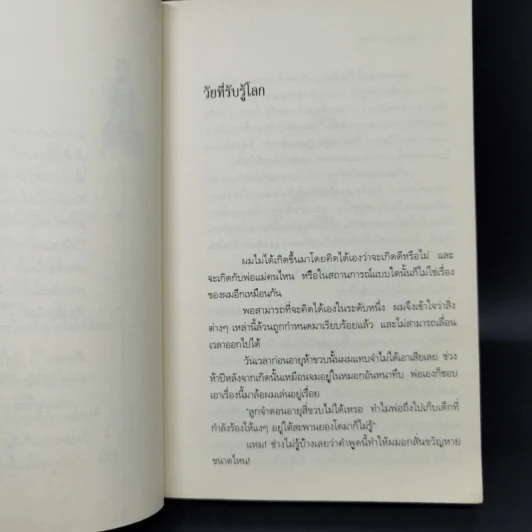 วัยที่รับรู้โลก
ผมไม่ได้เกิดขึ้นมาโดยคิดได้เองว่าจะเกิดดีหรือไม่ และ
จะเกิดกับพ่อแม่คนไหน หรือในสถานการณ์แบบใดนั้นก็ไม่ใช่เรื่อง
ของผมอีกเหมือนกัน
พอสามารถที่จะคิดได้เองในระดับหนึ่ง ผมจึงเข้าใจว่าสิ่ง
ต่างๆ เหล่านี้ล้วนถูกกำหนดมาเรียบร้อยแล้ว และไม่สามารถเลื่อน
เวลาออกไปได้
วันเวลาก่อนอายุห้าขวบนั้นผมแทบจำไม่ได้เอาเสียเลย ช่วง
ห้าปีหลังจากเกิดนั้นเหมือนจมอยู่ในหมอกอันหนาทึบ พ่อเองก็ชอบ
เอาเรื่องนี้มาล้อผมเล่นอยู่เรื่อย
"ลูกจำตอนอายุสี่ขวบไม่ได้เหรอ ทำไมพ่อถึงไปเก็บเด็กที่
กำลังร้องไห้แงๆ อยู่ใต้สะพานยองโดมาก็ไม่รู้"
แหม! ช่างไม่รู้บ้างเลยว่าคำพูดนี้ทำให้ผมอกสั่นขวัญหาย
ขนาดไหน!